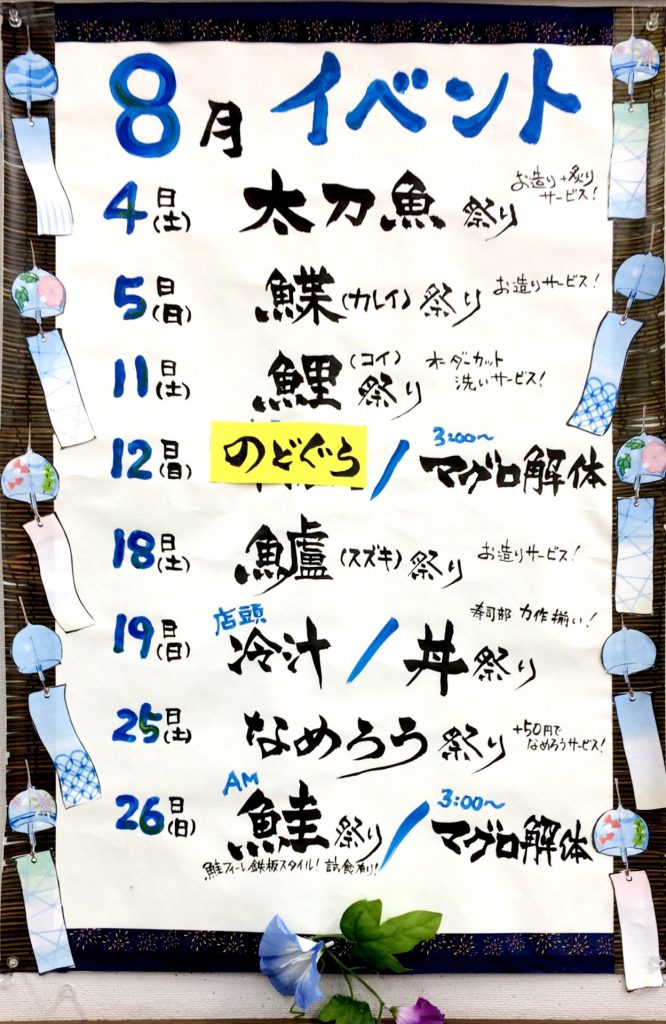 8月 イベント
4日(土) 太刀魚 祭り お造り+炙りサービス!
5日(日) 鰈(カレイ)祭り お造りサービス!
11日(土) 鯉(コイ)祭り オーダーカット
洗いサービス!
12日(日) のどぐろ / 3:00〜 マグロ解体
18日(土) 鱸(スズキ)祭り お造りサービス!
19日(日) 店頭 冷汁 / 丼祭り 寿司部 力作揃い!
25日(土) なめろう祭り +50円で
なめろうサービス!
26日(日) AM 鮭祭り / 3:00〜 マグロ解体
鮭フィーレ鉄板スタイル! 試食有り!